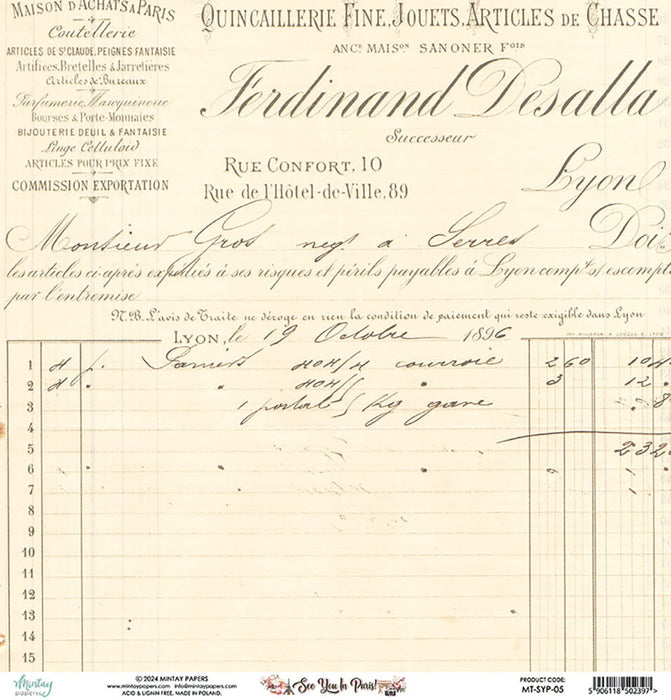 MAISON D'ACHATS A PARIS
Coutellerie
ARTICLES DE St CLAUDE, PEIGNES FANTAISIE
Artifices, Bretelles & Jarretières
Articles de Bureaux
Parfumerie, Maroquinerie
Bourses & Porte-Monnaies
BIJOUTERIE DEUIL & FANTAISIE
Linge Celluloïd
ARTICLES POUR PRIX FIXE
COMMISSION EXPORTATION
QUINCAILLERIE FINE, JOUETS, ARTICLES DE CHASSE
ANCe MAISON SANONER Fois
Ferdinand Desalla
Successeur
RUE CONFORT, 10
Rue de l'Hôtel-de-Ville, 89
Lyon
Monsieur Gros negt à Serres Doi
les articles ci-après expédiés à ses risques et périls payables à Lyon compt s/ escompt
par l'entremise
N.B. L'avis de Traite ne déroge en rien la condition de paiement qui reste exigible dans Lyon
LYON, le 19 Octobre 1896
1 Paniers courroie 2 60 10 4
2 3 12
3 1 5 Kg gare 8
4
5 232
6
7
8
9
10
11
12
13
14
15
Mintay papers
© 2024 MINTAY PAPERS
www.mintaypapers.com info@mintaypapers.com
ACID & LIGNIN FREE. MADE IN POLAND.
See You In Paris!
PRODUCT CODE:
MT-SYP-05
5 906118 502397